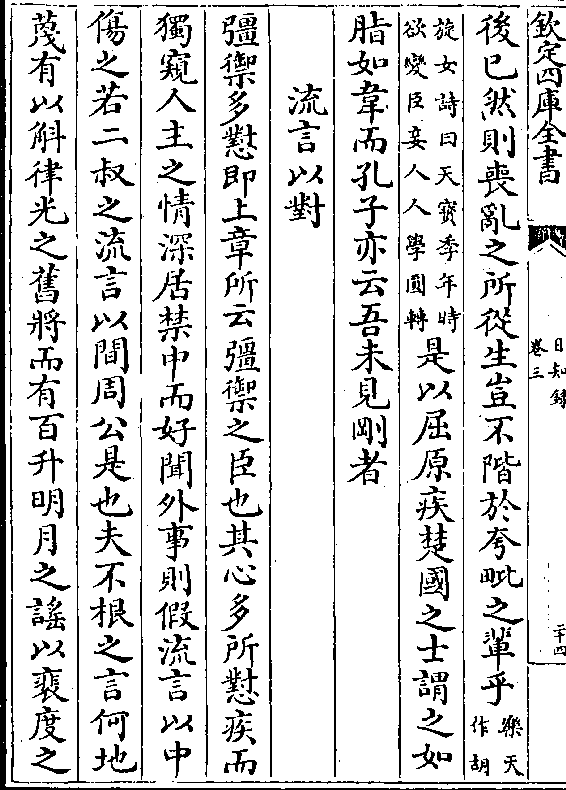 欽定四庫全書
日知錄
卷三
二十四
後已然則喪亂之所從生豈不階於夸毗之輩乎樂天
作胡
旋女詩曰天寶季年時
欲變臣妾人人學圓轉是以屈原疾楚國之士謂之如
脂如韋而孔子亦云吾未見剛者
流言以對
彊禦多懟即上章所云彊禦之臣也其心多所懟疾而
獨窺人主之情深居禁中而好聞外事則假流言以中
傷之若二叔之流言以間周公是也夫不根之言何地
蔑有以斛律光之舊將而有百升明月之謠以裴度之